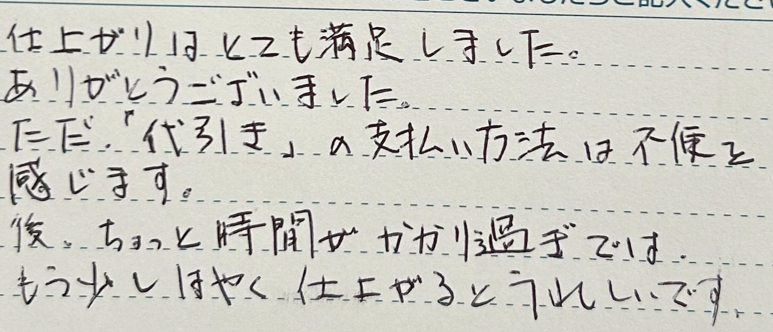 仕上がりはとても満足しました。
ありがとうございました。
ただ、「代引き」の支払い方法は不便を
感じます。
後、ちょっと時間がかかり過ぎでは、
もう少しはやく仕上がるとうれしいです、